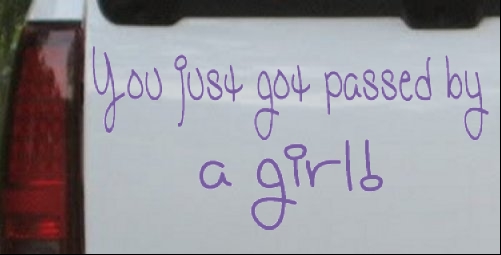 You just got passed by
a girl!